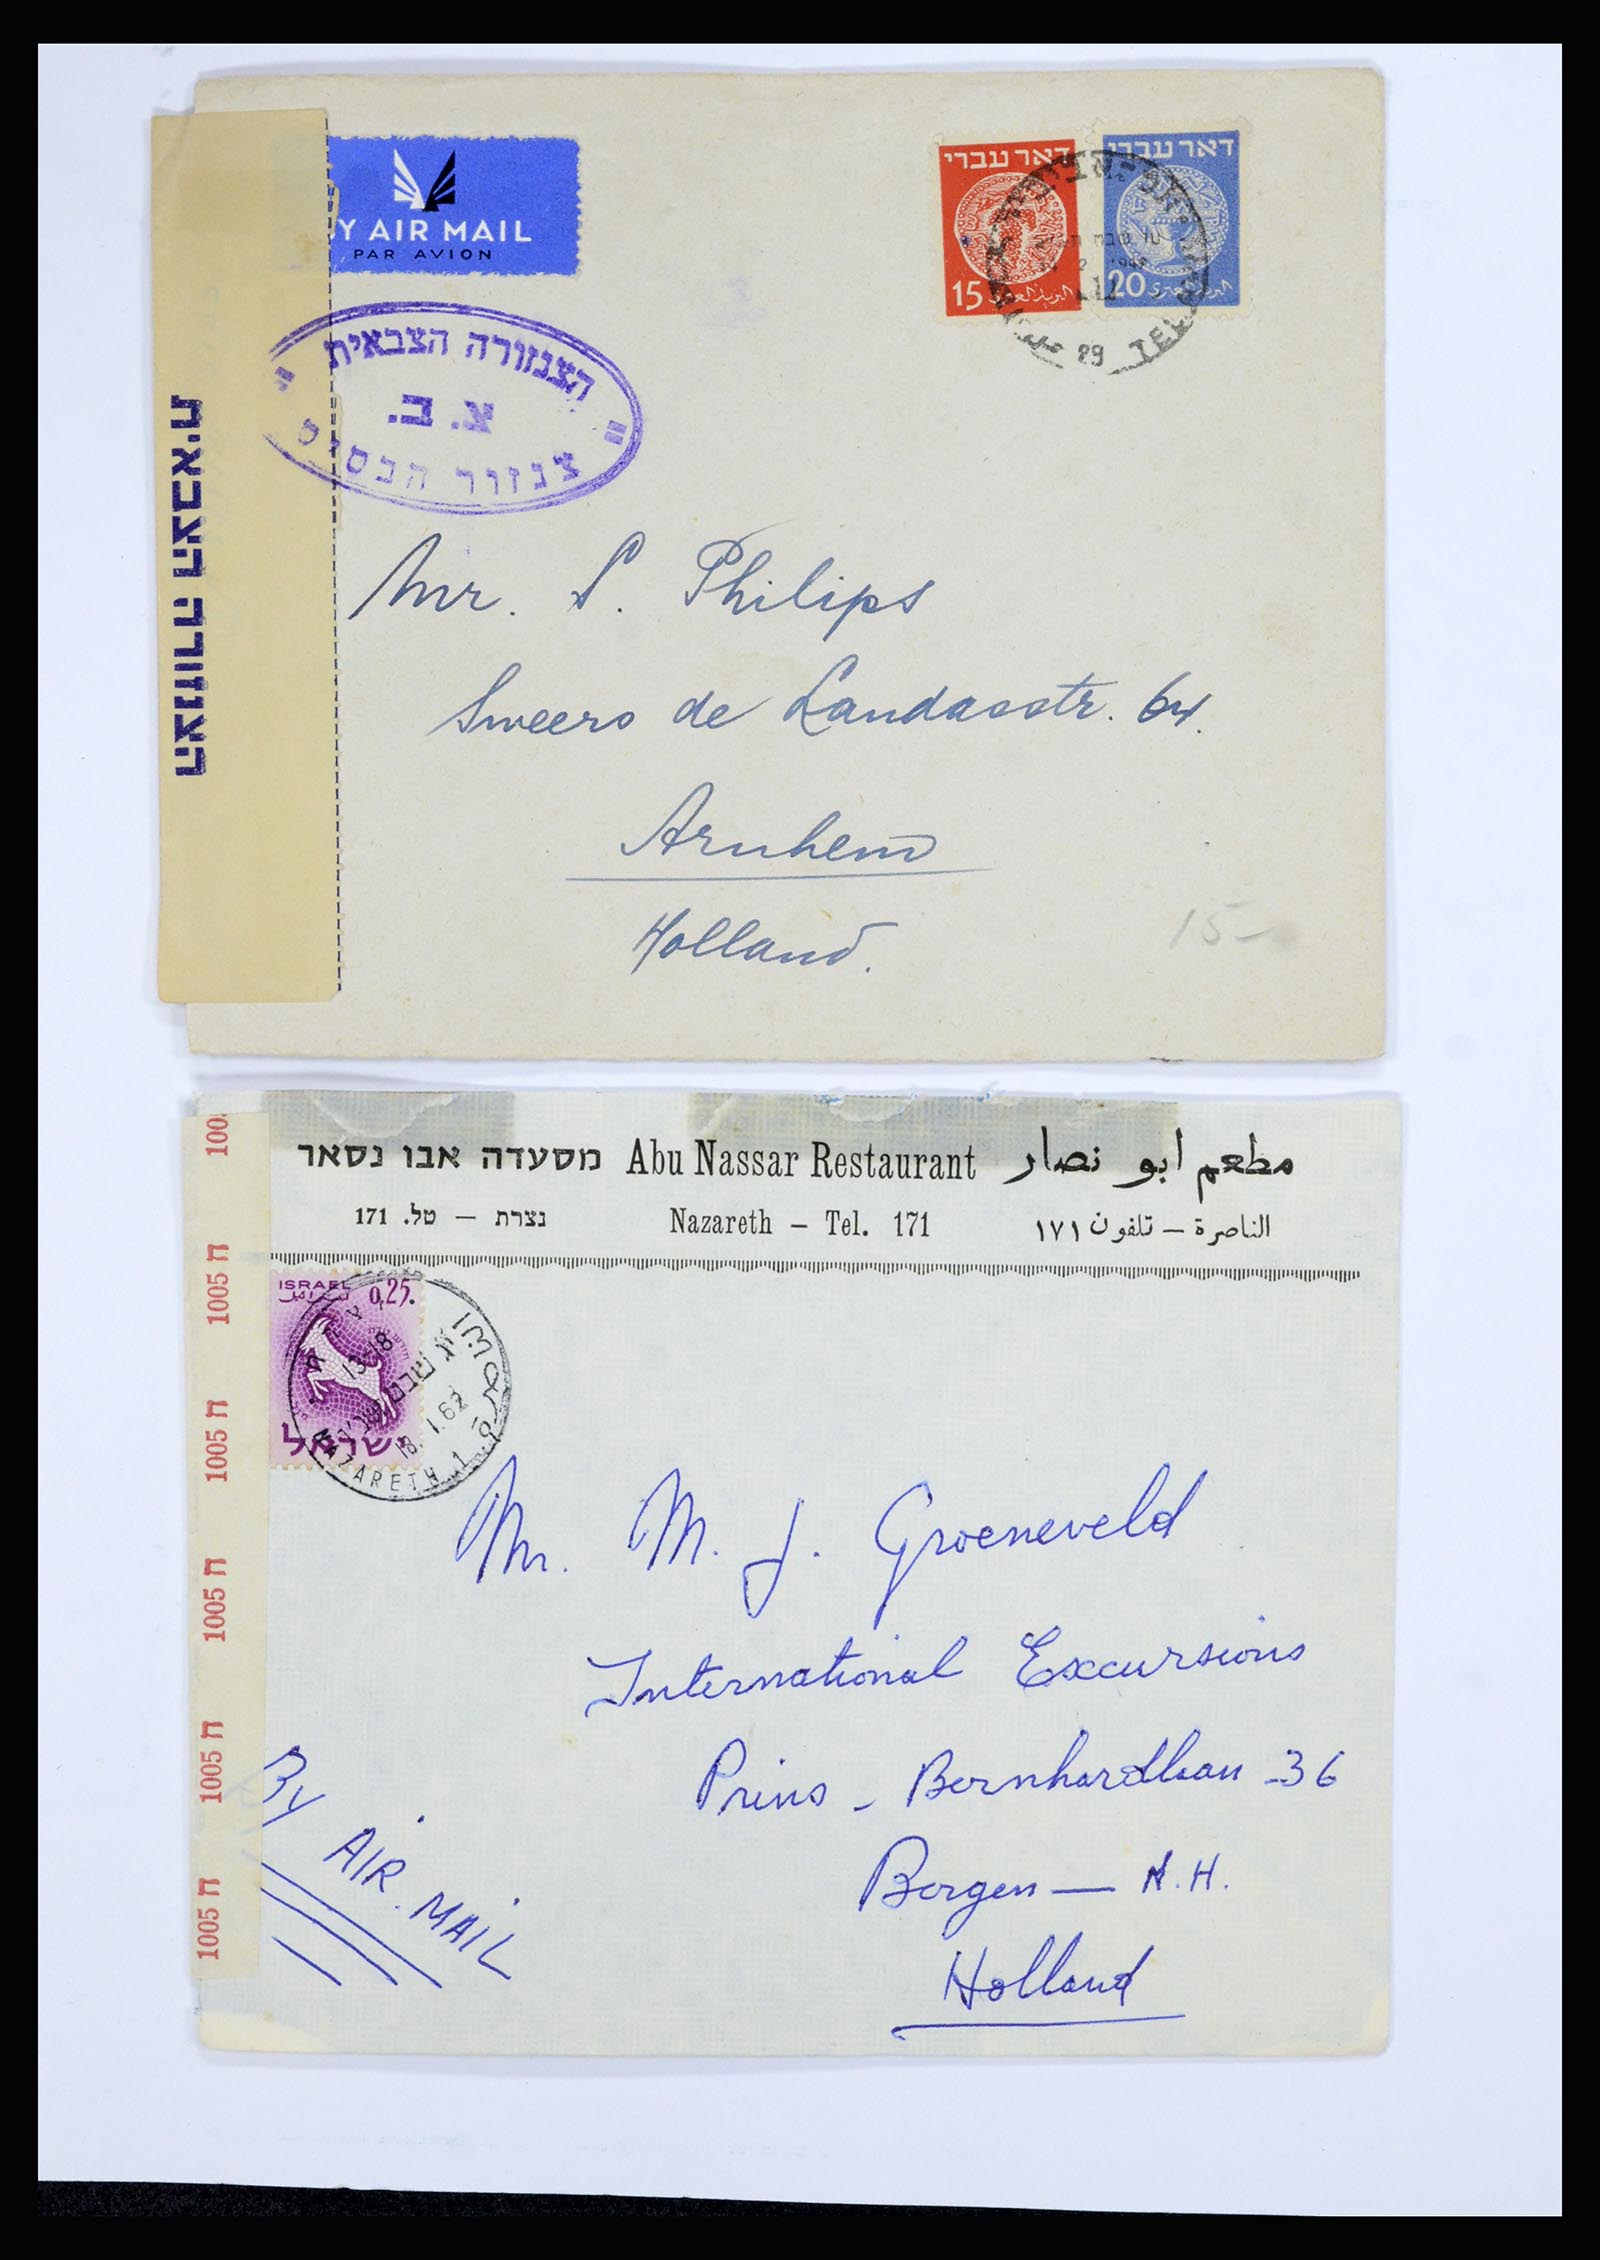 BY AIR MAIL
PAR AVION
דאר עברי
15 البريد العبري
דאר עברי
20 البريد العبري
29 TEL
הצנזורה הצבאית
צ. ב.
צנזור הבסיס
הצנזורה הצבאית
Mr. S. Philips
Sweers de Landasstr. 64.
Arnhem
Holland.
15-
מסעדה אבו נסאר Abu Nassar Restaurant مطعم ابو نصار
נצרת – טל. 171 Nazareth – Tel. 171 الناصرة – تلفون ١٧١
ISRAEL 0.25
اسرائيل
ישראל
13-18
18.1.62
NAZARETH 1
الناصرة
ח 1005
ח 1005
ח 1005
ח 1005
ח 1005
1005
Mr. M. J. Groeneveld
International Excursions
Prins - Bernhardlaan - 36
Bergen — N.H.
Holland
By AIR MAIL